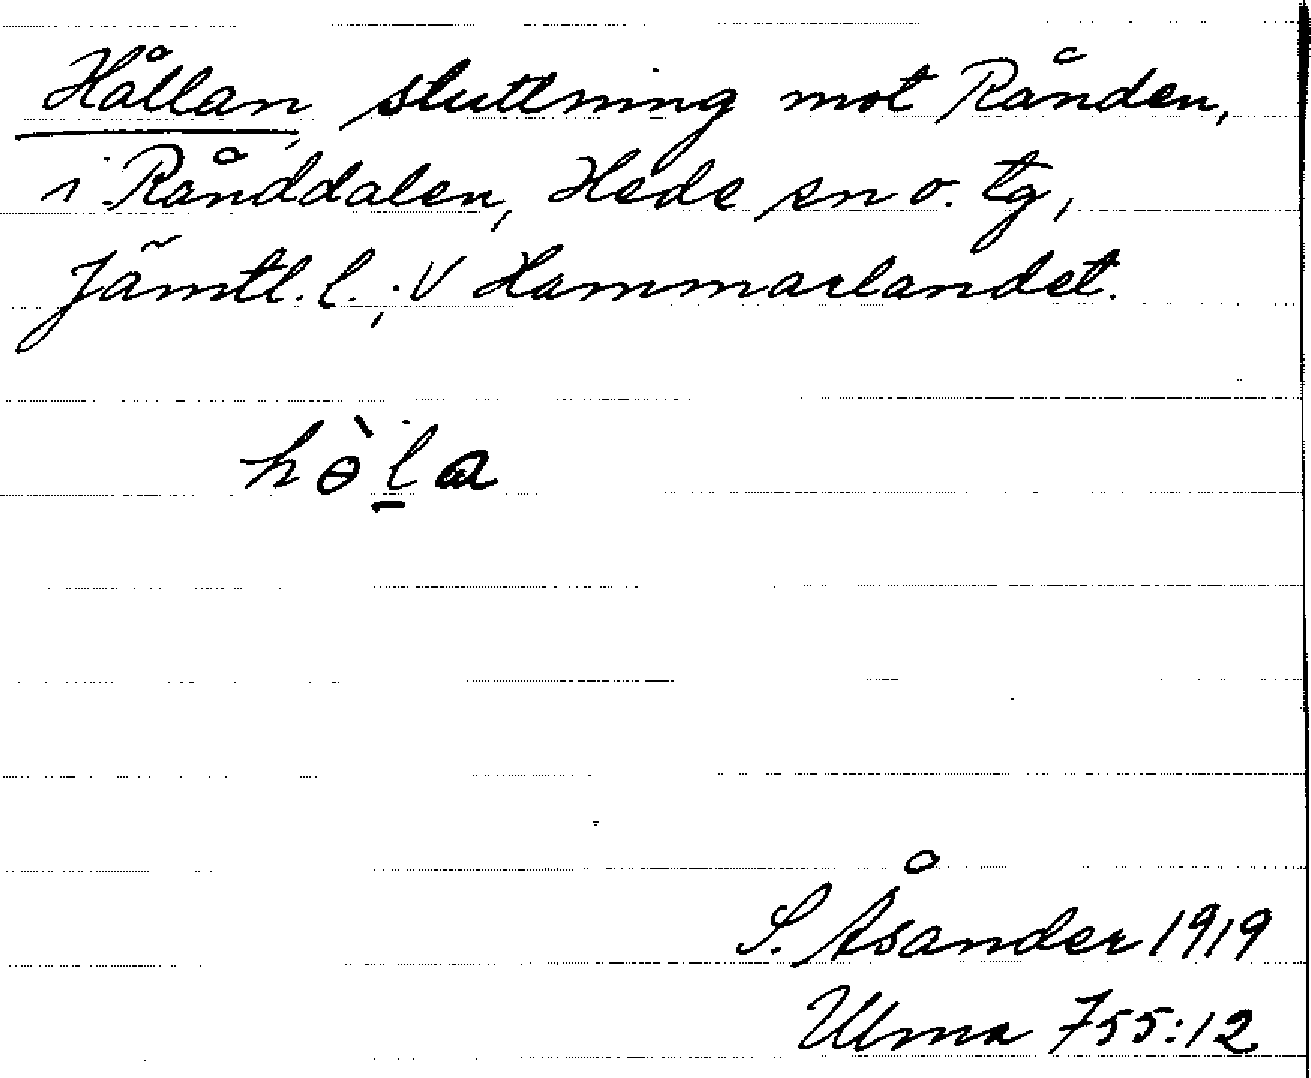 Hållan, sluttning mot Rånden,
i Rånddalen, Hede sn o. tg,
Jämtl. l.; V Hammarlandet.
hɵ̀l̠a
S. Åsander 1919
Ulma 755:12